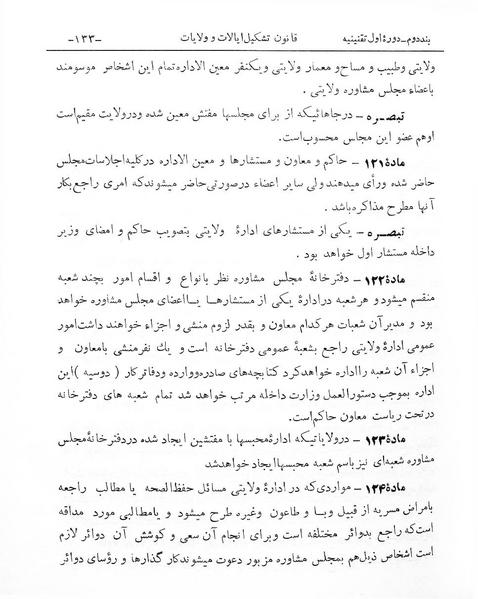 بند دوم ـ دورۀ اول تقنینیه    قانون تشکیل ایالات و ولایات    ـ۱۳۳ـ
ولایتی وطبیب و مساح و معمار ولایتی ویکنفر معین الاداره تمام این اشخاص موسومند
باعضاء مجلس مشاوره ولایتی .
تبصـره ـ درجاهائیکه از برای مجلسها مفتش معین شده ودرولایت مقیم است
اوهم عضو این مجلس محسوب است.
مادۀ ۱۲۱ ـ حاکم و معاون و مستشارها و معین الاداره درکلیه اجلاسات مجلس
حاضر شده ورأی میدهند ولی سایر اعضاء درصورتی حاضر میشوند که امری راجع بکار
آنها مطرح مذاکره باشد .
تبصـره ـ یکی از مستشارهای ادارۀ ولایتی بتصویب حاکم و امضای وزیر
داخله مستشار اول خواهد بود .
مادۀ ۱۲۲ ـ دفترخانۀ مجلس مشاوره نظر بانواع و اقسام امور بچند شعبه
منقسم میشود و هر شعبه درادارۀ یکی از مستشارهـا یـااعضای مجلس مشاوره خواهد
بود و مدیرآن شعبات هرکدام معاون و بقدر لزوم منشی و اجزاء خواهند داشت امور
عمومی ادارۀ ولایتی راجع بشعبۀ عمومی دفترخانه است و یك نفرمنشی بامعاون و
اجزاء آن شعبه رااداره خواهدکرد کتابچه‌های صادره ووارده ودفاترکار ( دوسیه ) این
اداره بموجب دستورالعمل وزارت داخله مرتب خواهد شد تمام شعبه های دفترخانه
درتحت ریاست معاون حاکم است.
مادۀ ۱۲۳ ـ درولایاتیکه ادارۀ محبسها با مفتشین ایجاد شده دردفترخانۀ مجلس
مشاوره شعبه‌ای نیز باسم شعبه محبسها ایجاد خواهدشد
مادۀ ۱۲۴ ـ مواردی که در ادارۀ ولایتی مسائل حفظ الصحه یا مطالب راجعه
بامراض مسریه از قبیل وبـا و طاعون وغیره طرح میشود و یامطالبی مورد مداقه
است که راجع بدوائر مختلفه است وبرای انجام آن سعی و کوشش آن دوائر لازم
است اشخاص ذیل هم بمجلس مشاوره مزبور دعوت میشوند کارگذارها و رؤسای دوائر